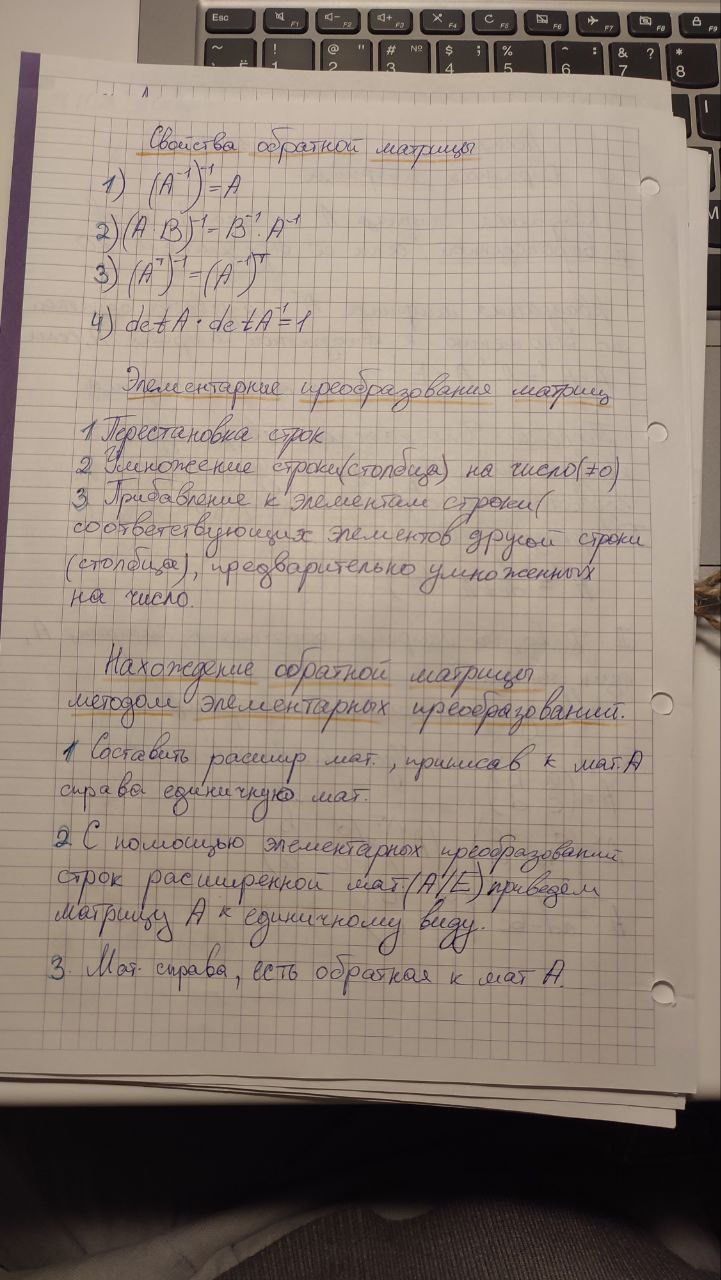 Esc F1 F2 F3 F4 F5 F6 F7 F8 F9
~ Ё ! 1 @ " 2 # № 3 $ ; 4 % 5 ^ : 6 & ? 7 * 8
Свойства обратной матрицы
1) (A⁻¹)⁻¹=A
2) (A·B)⁻¹=B⁻¹·A⁻¹
3) (Aᵀ)⁻¹=(A⁻¹)ᵀ
4) detA·detA⁻¹=1
Элементарные преобразования матриц
1 Перестановка строк
2 Умножение строки(столбца) на число(≠0)
3 Прибавление к элементам строки(
соответствующих элементов другой строки
(столбца), предварительно умноженных
на число.
Нахождение обратной матрицы
методом элементарных преобразований.
1 Составить расшир мат., приписав к мат.A
справа единичную мат.
2 С помощью элементарных преобразований
строк расширенной мат.(A/E) приведём
матрицу A к единичному виду.
3. Мат. справа, есть обратная к мат A.